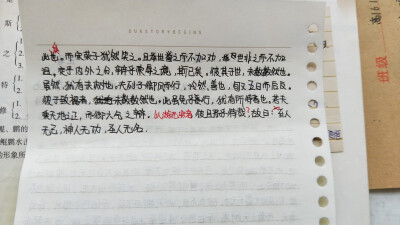 SUNSTORYBEGINS
此也。而宋荣子犹然笑之。且举世誉之而不加劝，举世非之而不加
沮，定乎内外之分，辩乎荣辱之境，斯已矣。彼其于世，未数数然也。
虽然，犹有未树也。夫列子御风而行，泠然善也，旬又五日而后反。
彼于致福者，未数数然也。此虽免乎行，犹有所待者也。若夫
乘天地之正，而御六气之辩，以游无穷者，彼且恶乎待哉？故曰：至人
无己，神人无功，圣人无名。
之
特
修
班级